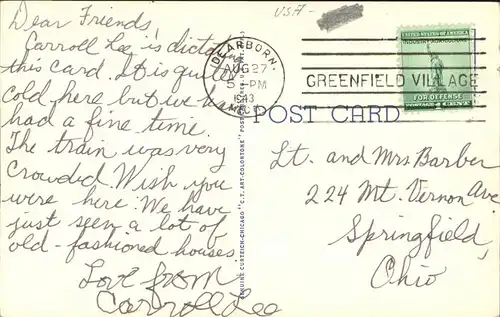 Dear Friends,
Carroll Lee is dicta
this card. It is quite
cold here but we ha
had a fine time.
The train was very
crowded. Wish you
were here. We have
just seen a lot of
old-fashioned houses.
Love from
Carroll Lee
USA-
DEARBORN,
AUG 27
5 PM
1943
MICH.
GREENFIELD VILLAGE
UNITED STATES OF AMERICA
INDUSTRY AGRICULTURE
FOR DEFENSE
POSTAGE 1 CENT
POST CARD
GENUINE CURTEICH-CHICAGO "C.T. ART-COLORTONE" POST CARD
Lt. and Mrs Barber
224 Mt. Vernon Ave
Springfield,
Ohio